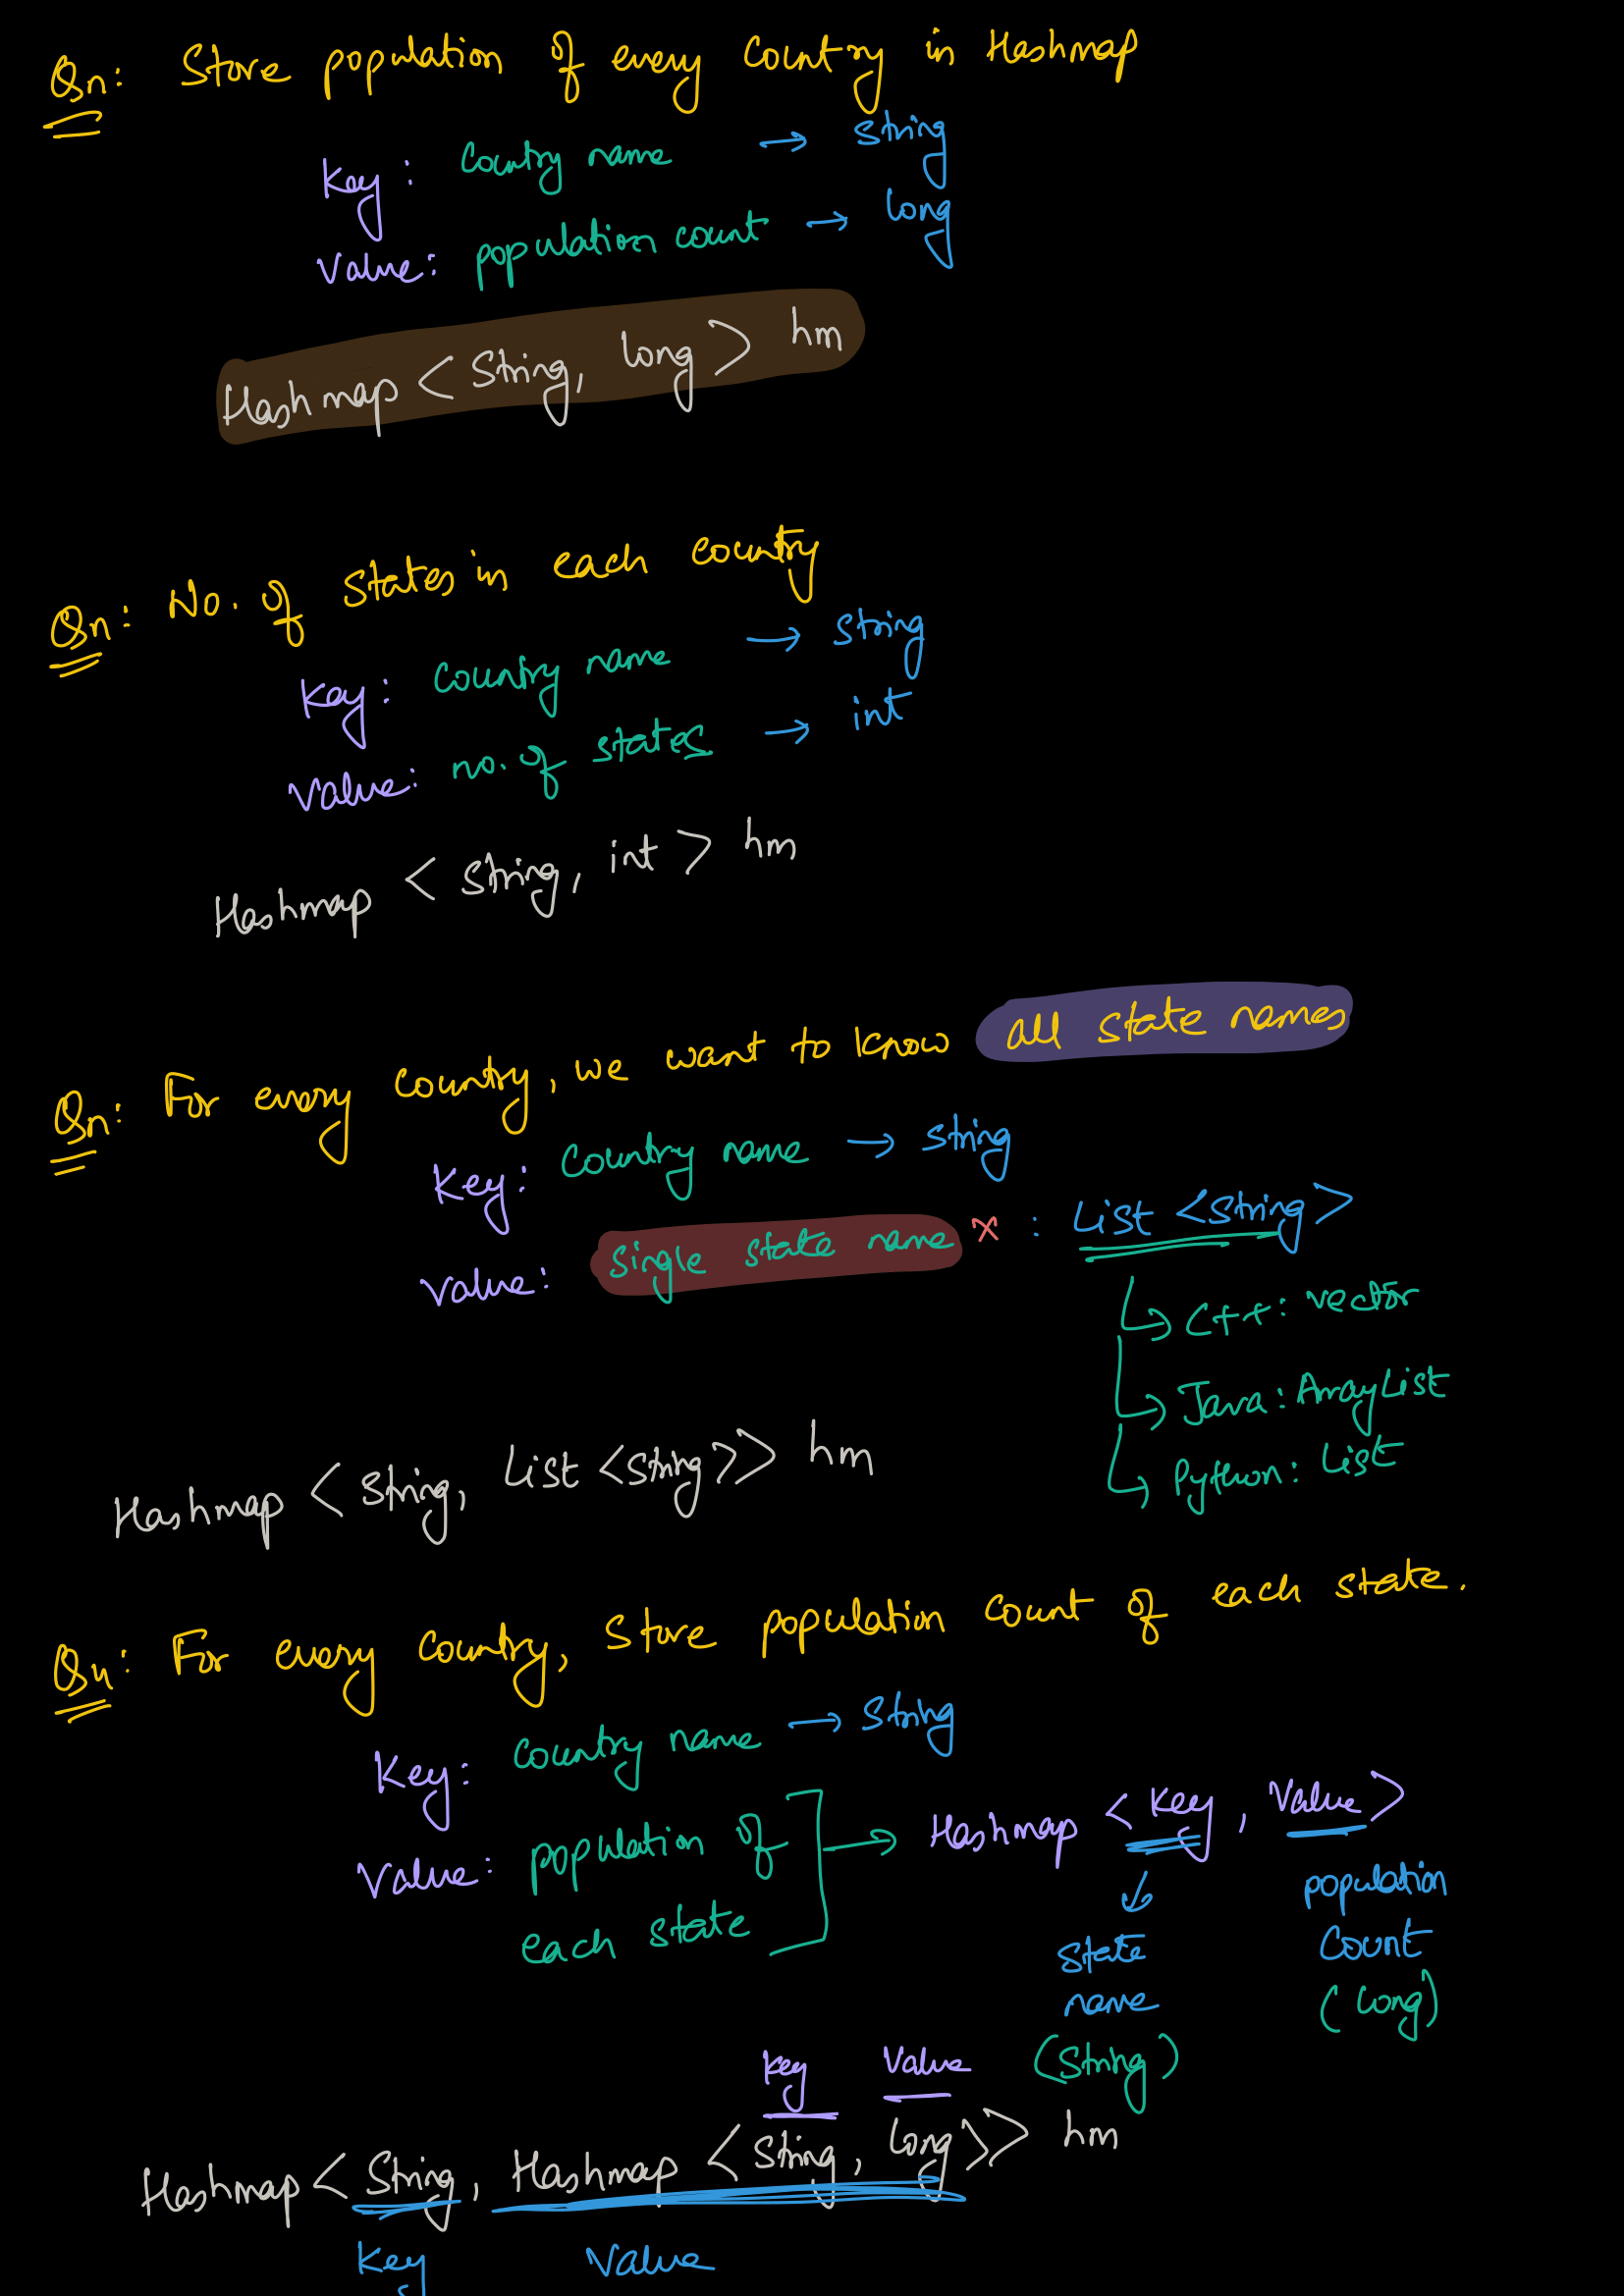 Qn: Store population of every country in Hashmap
Key: Country name → String
Value: population count → long
Hashmap < String, long > hm
Qn: No. of states in each country
Key: Country name → String
Value: no. of states → int
Hashmap < String, int > hm
Qn: For every country, we want to know all state names
Key: Country name → String
Value: single state name x : List <String>
↳ C++: vector
↳ Java: ArrayList
↳ Python: List
Hashmap < String, List <String>> hm
Qn: For every country, store population count of each state.
Key: Country name → String
Value: population of each state → Hashmap < Key, Value >
state name (String)
population count (long)
Key Value
Hashmap < String, Hashmap < String, long >> hm
Key Value